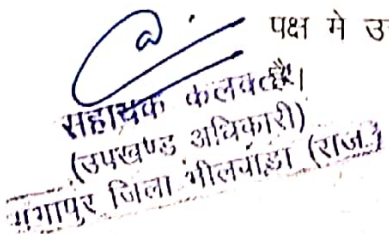 पक्ष मे उ
है।
सहायक कलक्टर
(उपखण्ड अधिकारी)
गंगापुर जिला भीलवाड़ा (राज.)